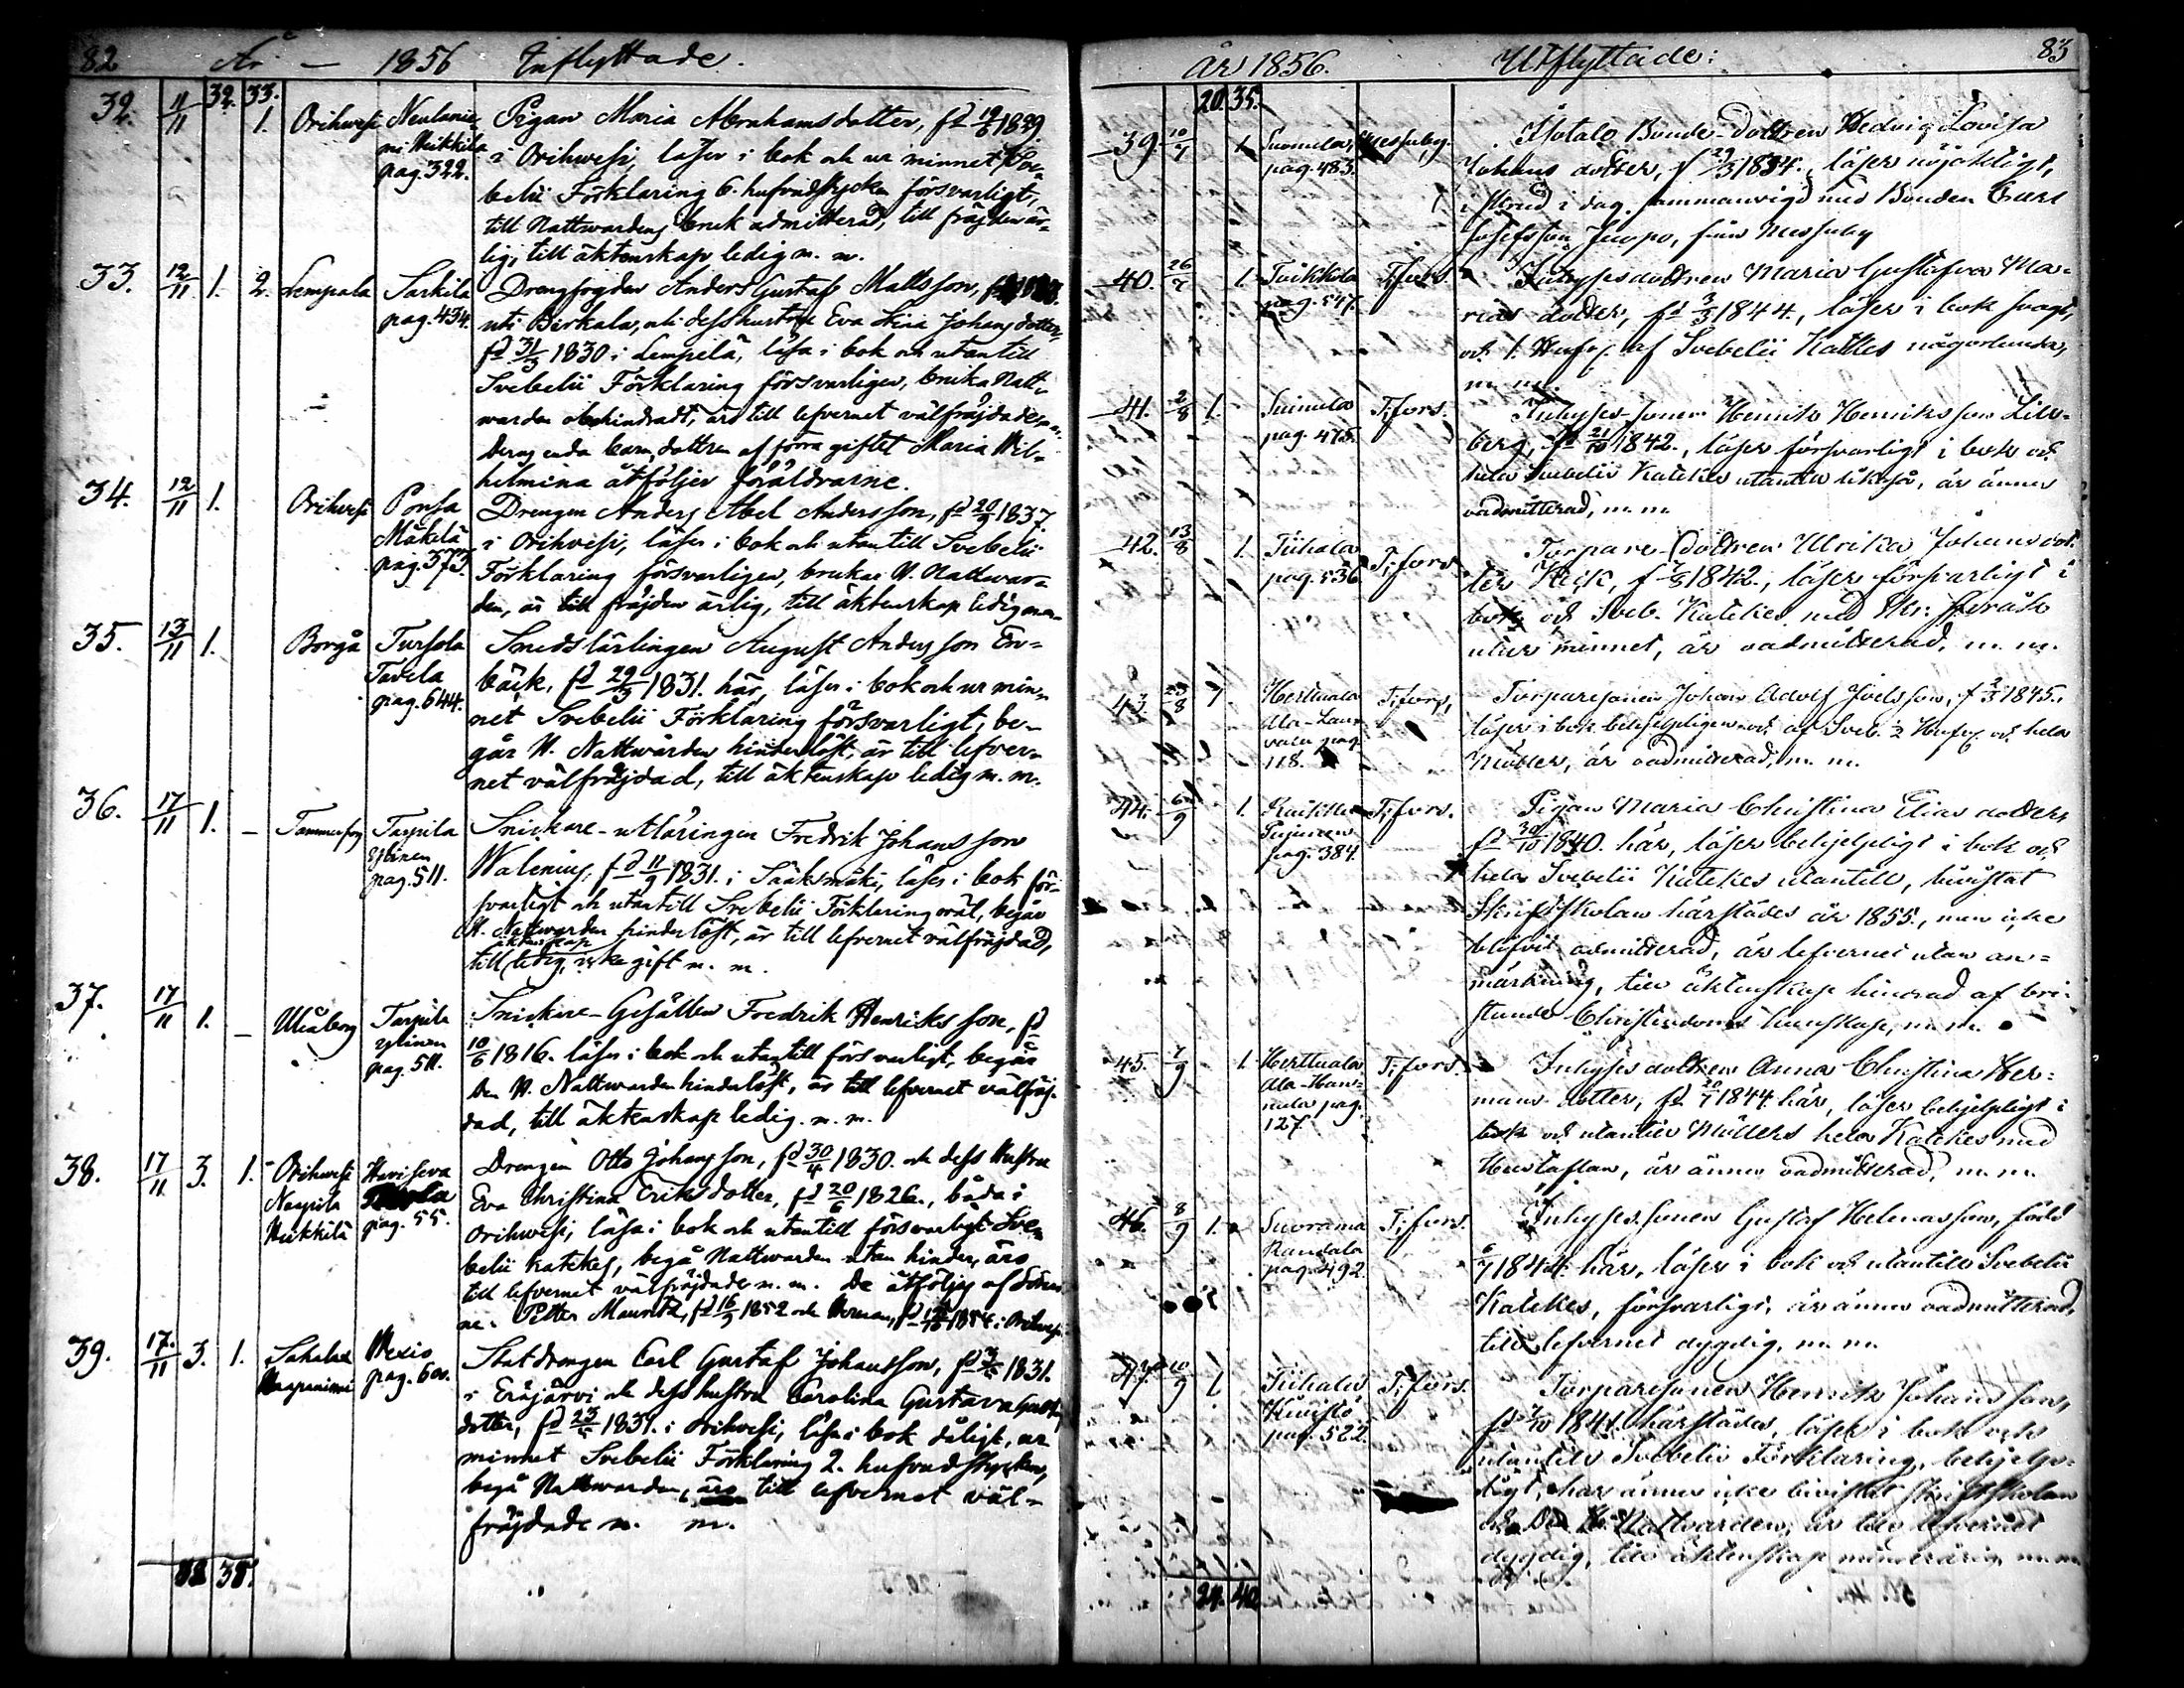 82 År — 1856 Inflyttade.
32. 33.
32. 11/11 1. Orihvesi Neulanie
mi Heikkilä
pag. 322.
Pigan Maria Abrahamsdotter, fd 19/6 1829
i Orihvesi, läser i bok och ur minnet Sve-
belii Förklaring 6. hufvudstycken försvarligt,
till Nattvardens bruk admitterad, till fräjden är-
lig, till äktenskap ledig m. m.
33. 12/11 1. 2. Lempala Sarkila
pag. 434.
Drengfogden Anders Gustaf Mattsson,
uti Birkala, och dess hustru Eva Stina Johansdotter,
fd 31/3 1830 i Lempelä, läsa i bok och utantill
Svebelii Förklaring försvarligen, bruka Natt-
varden obehindradt, äro till lefvernet välfräjdade m.m.
Deras enda barn, dottren af förra giftet Maria Wil-
helmina åtföljer föräldrarne.
34. 12/11 1. Orihvesi Ponsa
Mäkelä
pag. 373.
Drengen Anders Abel Andersson, fd 20/9 1837.
i Orihvesi, läser i bok och utantill Svebelii
Förklaring försvarligen, brukar H. Nattvar-
den, är till fräjden ärlig, till äktenskap ledig m.m.
35. 13/11 1. Borgå Tursola
Tavela
pag. 644.
Smedslärlingen August Andersson En-
bäck, fd 29/3 1831. här, läser i bok och ur min-
net Svebelii Förklaring försvarligt, be-
går H. Nattvarden hinderlöst, är till lefver-
net välfräjdad, till äktenskap ledig m. m.
36. 17/11 1. — Tammerfors Tarpila
Ylinen
pag. 511.
Snickare-utläringen Fredrik Johansson
Walenius, fd 11/9 1831. i Sääksmäki, läser i bok för-
svarligt och utantill Svebelii Förklaring väl, begår
H. Nattvarden hinderlöst, är till lefvernet välfräjdad,
till äktenskap ledig, icke gift m. m.
37. 17/11 1. — Uleåborg Tarpila
Ylinen
pag. 511.
Snickare-Gesällen Fredrik Henriksson, fd
10/6 1816. läser i bok och utantill försvarligt, begår
den H. Nattvarden hinderlöst, är till lefvernet välfräj-
dad, till äktenskap ledig. m. m.
38. 17/11 3. 1. Orihvesi
Naapila
Heikkilä
Haviseva
pag. 55.
Drengen Otto Johansson, fd 30/4 1830. och dess Hustru
Eva Christina Eriksdotter, fd 20/6 1826., båda i
Orihvesi, läsa i bok och utantill försvarligt Sve-
belii Katekes, begå Nattvarden utan hinder, äro
till lefvernet välfräjdade m. m. De åtföljas af Söner-
ne: Petter Mauritz, fd 16/9 1852 och Herman, 1854. i Orihvesi
39. 17/11 3. 1. Sahalax
Haapaniemi
Wexio
pag. 600.
Statdrengen Carl Gustaf Johansson, 1831.
i Eräjärvi och dess hustru Carolina Gustava Gustafs
dotter, 1831. i Orihvesi, läsa i bok dåligt, ur
minnet Svebelii Förklaring 2. hufvudstycken,
begå Nattvarden, äro till lefvernet väl-
fräjdade m. m.
38.
år 1856. Utflyttade: 83
20. 35.
39 10/7 1. Suomela,
pag. 483.
Messuby.
Åbotals Bonde-Dottren Hedvig Lovisa
Johansdotter, f 29/3 1834., läser nöjaktligt,
i dag sammanvigd med Bonden Carl
Josefsson Juopo, från Messuby
40. 26/7 1. Tiikkola
pag. 547.
T;fors.
Inhysesdottren Maria Gustafva Ma-
rias dotter, fd 3/3 1844., läser i bok svagt,
och 1. Hufst. af Svebelii Katkes någorlunda,
m. m.
41. 2/8 1. Suinula
pag. 475.
T;fors.
Inhyses-sonen Henrik Henriksson Lill-
berg, fd 21/10 1842., läser försvarligt i bok och
hela Svebelii Katekes utantill likaså, är ännu
oadmitterad, m. m.
42. 13/8 1. Tiihala
pag. 536
T;fors
Torpare-dottren Ulrika Johansdot-
ter, 1842., läser försvarligt i
bok och Sveb. Katekes med
utur minnet, är oadmitterad, m. m.
43. 23/8 1. Herttuala
Ala-
pag.
118.
T;fors,
Torparesonen Johan Adolf Joelsson, f 2/3 1845.
läser i bok behjelpligen och af Sveb. ½ Hufst. och hela
Möller, är oadmitterad, m. m.
44. 6/9 1. Kuikka
pag. 384.
T;fors.
Pigan Maria Christina Elias dotter
fd 30/10 1840. här, läser behjelpligt i bok och
hela Svebelii Katekes utantill, bevistat
Skriftskolan härstädes år 1855., men icke
blifvit admitterad, är lefvernet utan an-
märkning, till äktenskap hindrad af bri-
stande Christendoms kunskap, m. m.
45. 7/9 1. Herttuala
Ala-
pag.
127
T;fors.
Inhyses dottren Anna Christina Her-
mans dotter, fd 20/7 1844. här, läser behjelpligt i
bok och utantill Möllers hela Katekes med
Hustaflan, är ännu oadmitterad, m. m.
46. 8/9 1. Suorama
Randala
pag. 492.
T;fors.
Inhysessonen Gustaf Helenasson, född
1844. här, läser i bok och utantill Svebelii
Katekes, försvarligt, är ännu oadmitterad,
till lefvernet dygdig, m. m.
47. 10/9 1. Tiihala
Knuisto
pag. 522.
T;fors.
Torparesonen Henrik Johansson,
fd 1841. härstädes, läser i bok och
utantill Svebelii Förklaring, behjelp-
ligt, har ännu icke bivistat skriftskolan
och Den H. Nattvarden, är till lefvernet
dygdig, till äktenskap minderårig m. m.
24. 40.